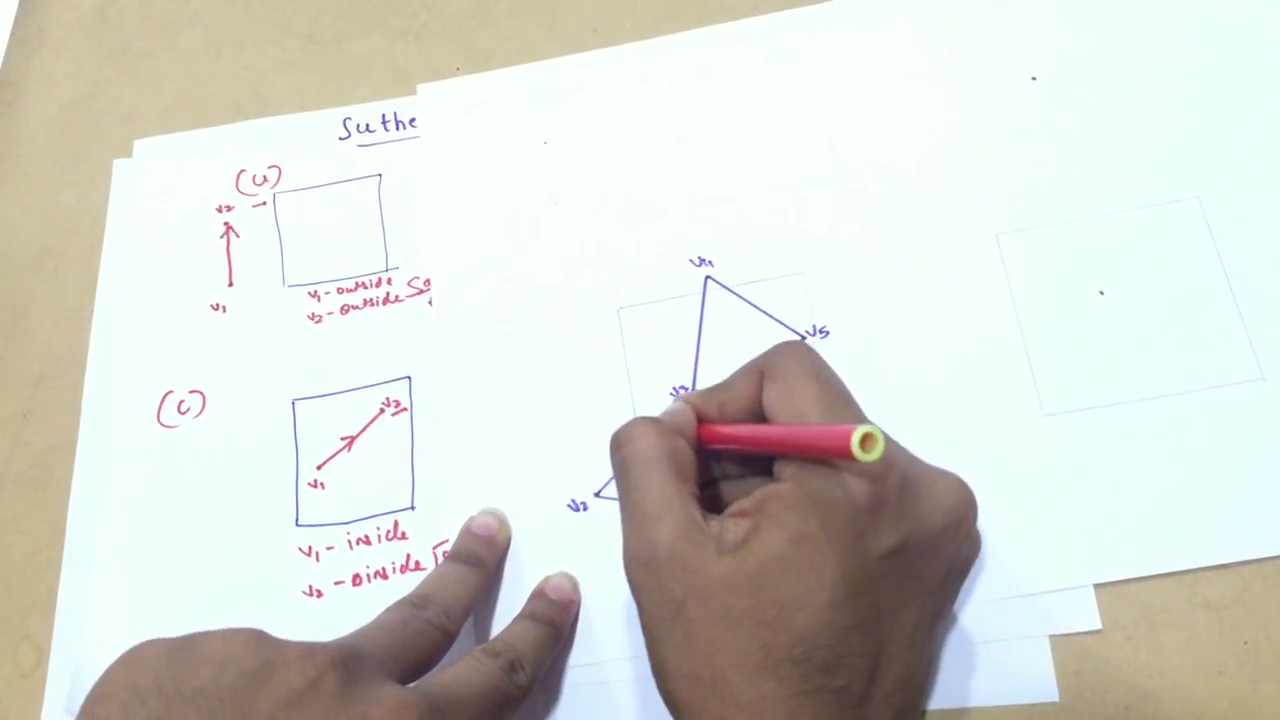 Suthe
(a)
v2
v1
v1-outside
v2-outside
(c)
v2
v1
v1- inside
v2-oinside
v4
v5
v3
v2